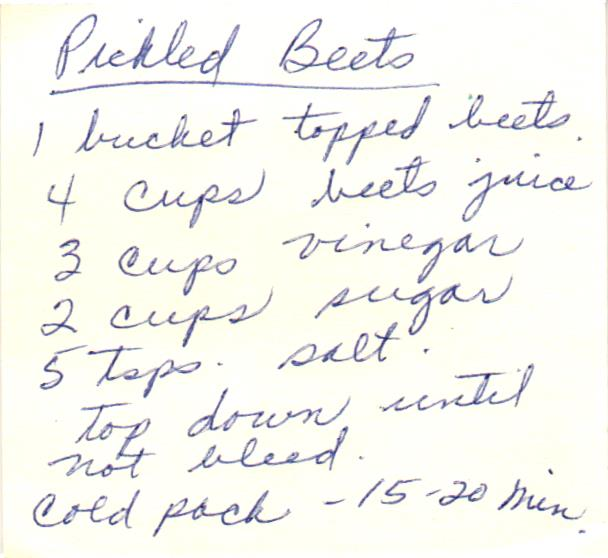 Pickled Beets
1 bucket topped beets.
4 cups beets juice
3 cups vinegar
2 cups sugar
5 tsps. salt.
top down until
not bleed.
Cold pack - 15-20 min.